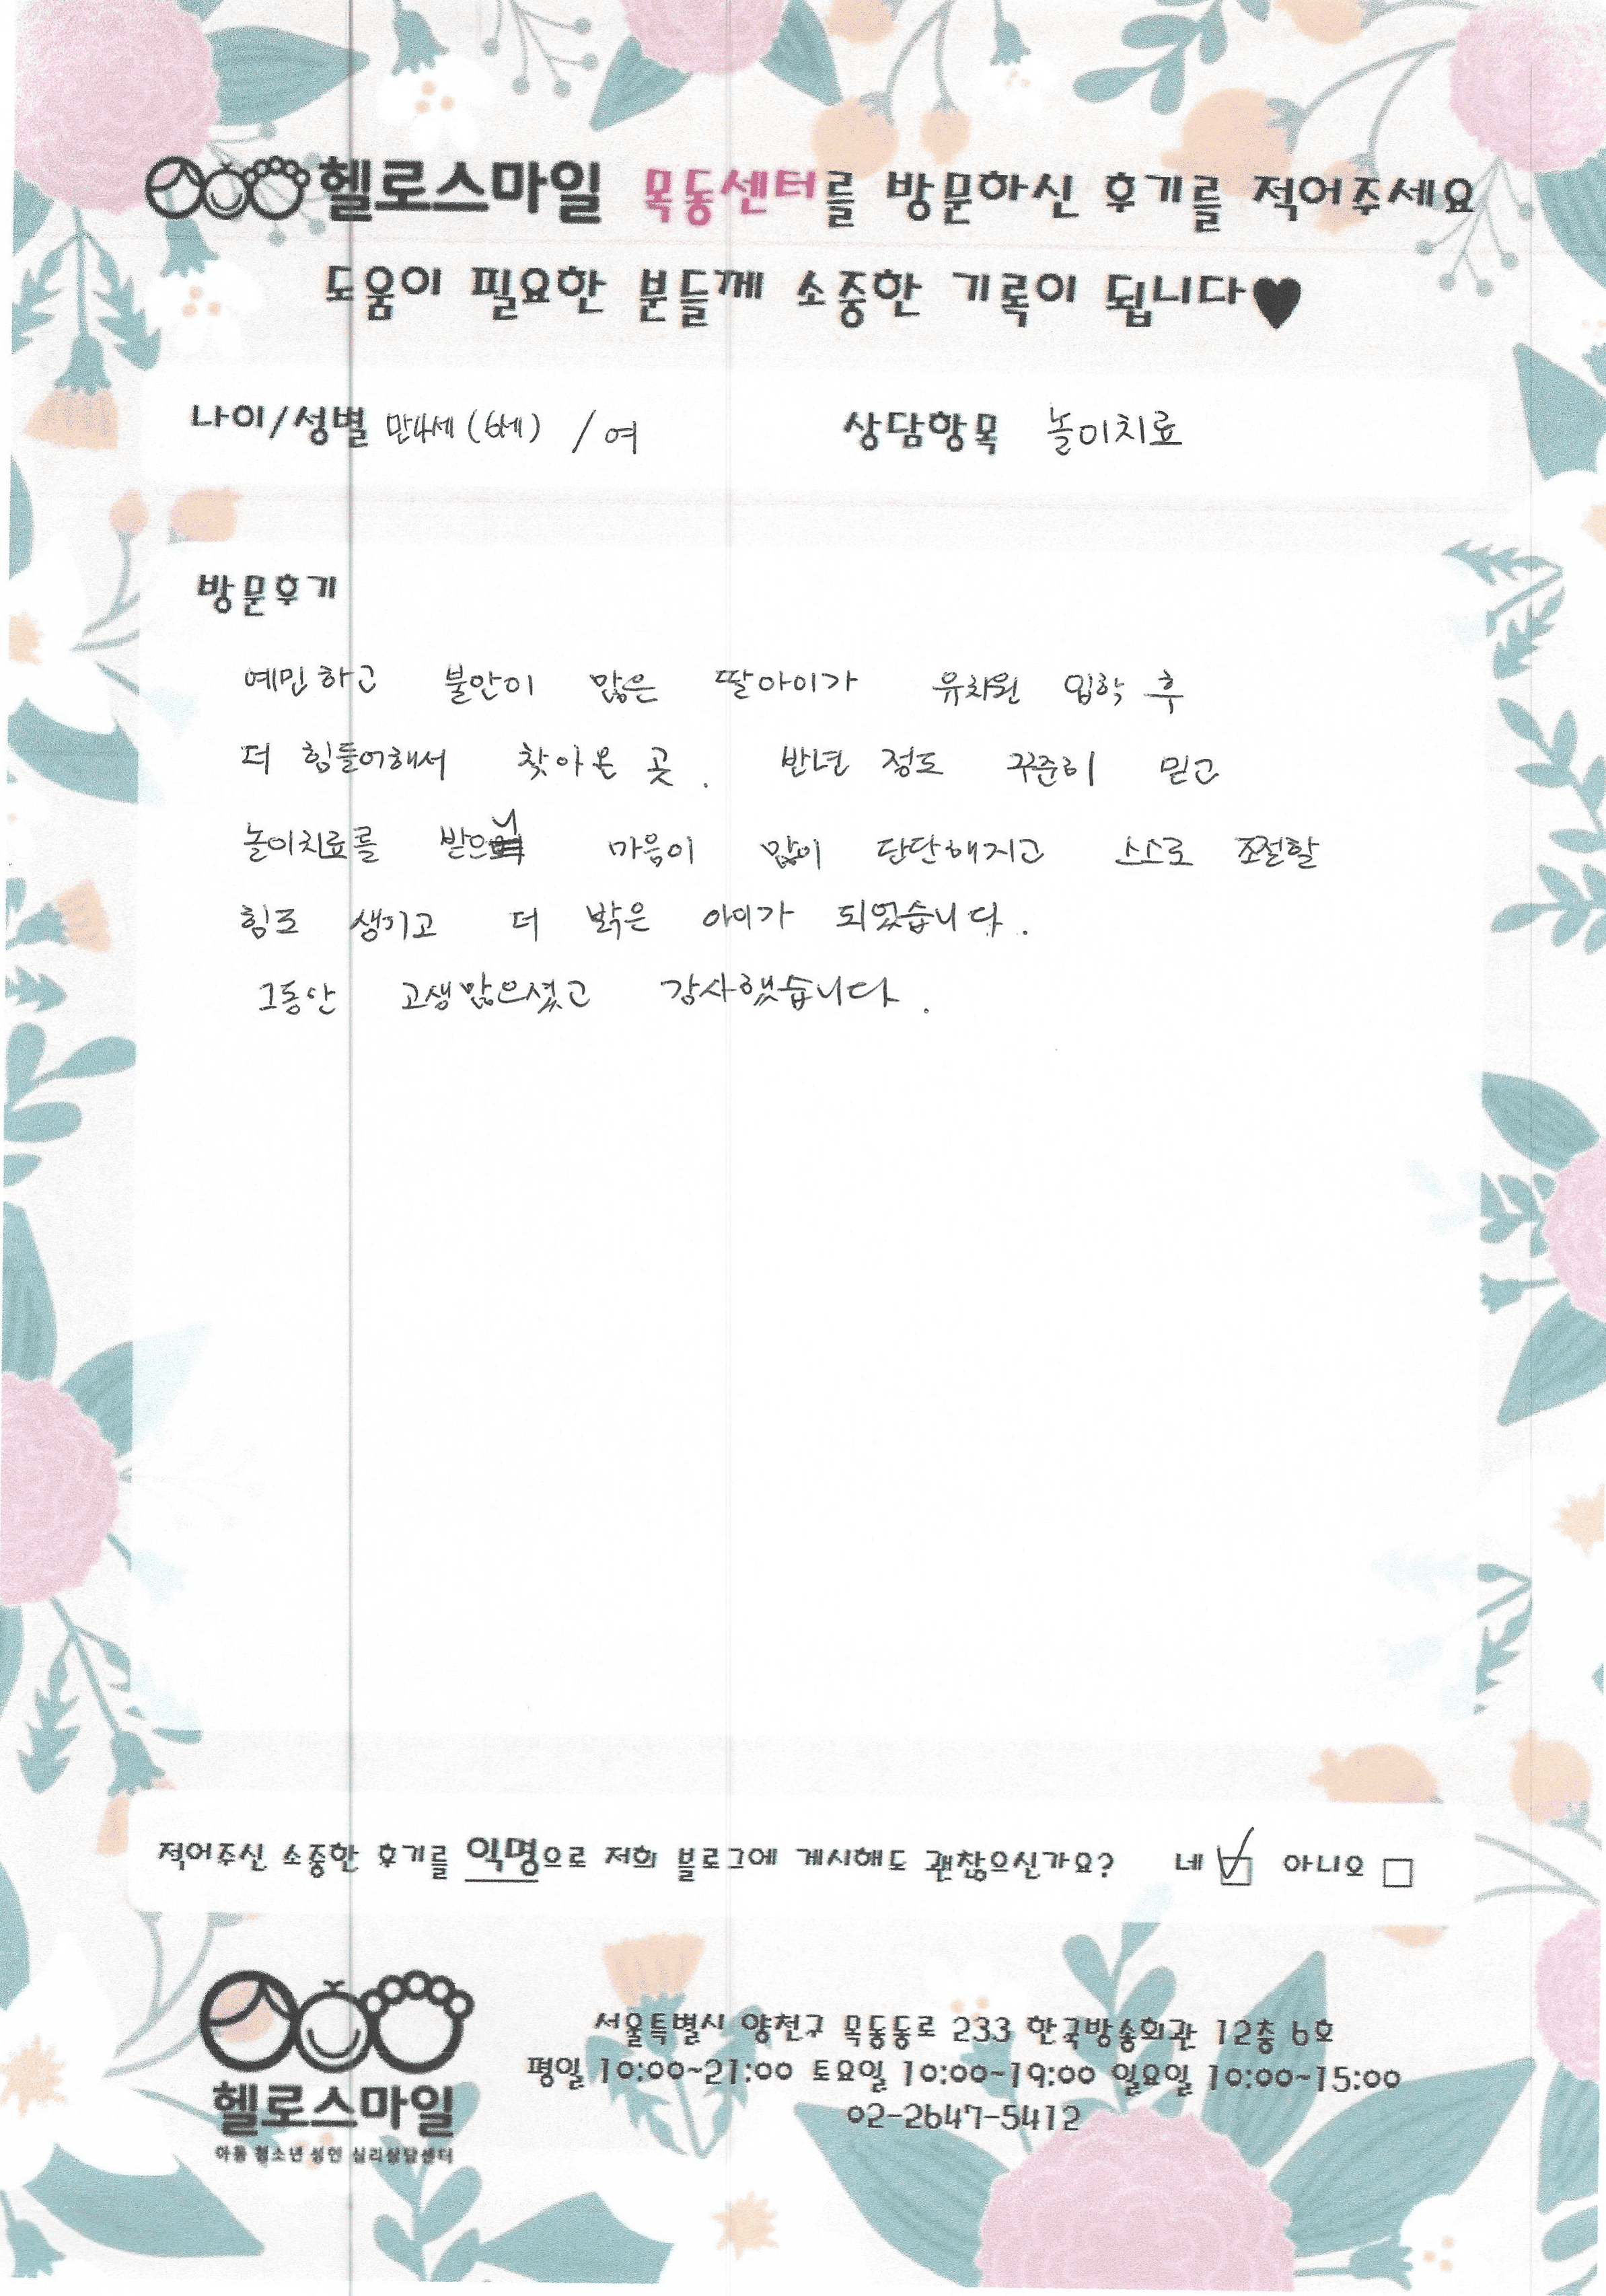 헬로스마일 목동센터를 방문하신 후기를 적어주세요
도움이 필요한 분들께 소중한 기록이 됩니다♥
나이/성별 만4세 (6세) / 여 상담항목 놀이치료
방문후기
예민하고 불안이 많은 딸아이가 유치원 입학 후
더 힘들어해서 찾아온 곳. 반년 정도 꾸준히 믿고
놀이치료를 받으니 마음이 많이 단단해지고 스스로 조절할
힘도 생기고 더 밝은 아이가 되었습니다.
그동안 고생많으셨고 감사했습니다.
적어주신 소중한 후기를 익명으로 저희 블로그에 게시해도 괜찮으신가요? 네 ☑ 아니오 □
헬로스마일
아동 청소년 성인 심리상담센터
서울특별시 양천구 목동동로 233 한국방송회관 12층 6호
평일 10:00~21:00 토요일 10:00~19:00 일요일 10:00~15:00
02-2647-5412